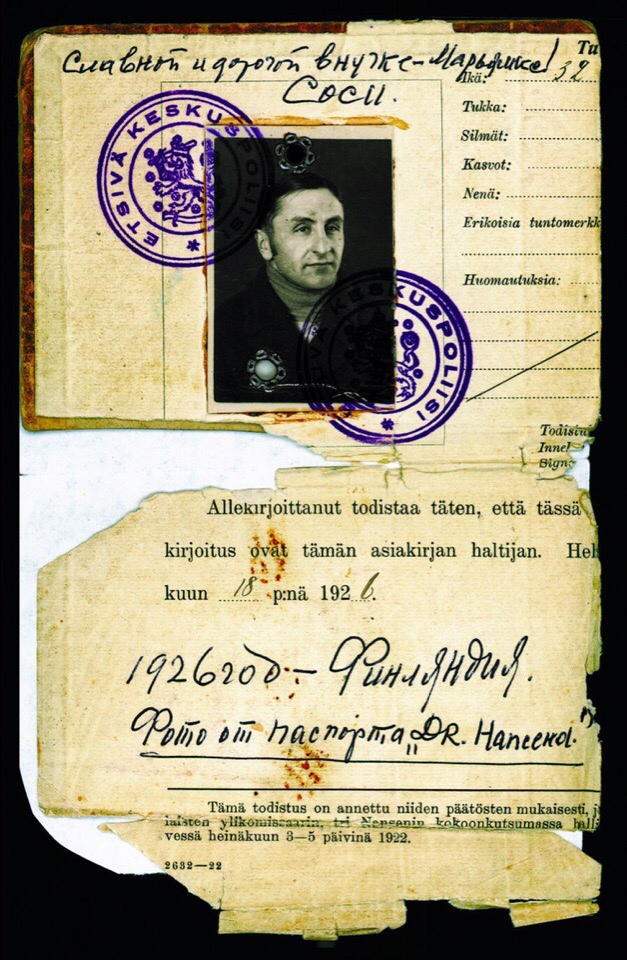 Славной и дорогой внучке - Марьянке!
Соси.
Tu
Ikä: 32
Tukka:
Silmät:
Kasvot:
Nenä:
Erikoisia tuntomerkk
Huomautuksia:
ETSIVÄ KESKUSPOLIISI
KESKUSPOLIISI
Todistu
Innel
Sign
Allekirjoittanut todistaa täten, että tässä
kirjoitus ovat tämän asiakirjan haltijan. Hel
kuun 18 p:nä 1926.
1926 год - Финляндия.
Фото от паспорта „DR. Нансена."
Tämä todistus on annettu niiden päätösten mukaisesti, j
laisten ylikomissaarin, tri Nansenin kokoonkutsumassa halli
vessä heinäkuun 3—5 päivinä 1922.
2632—22